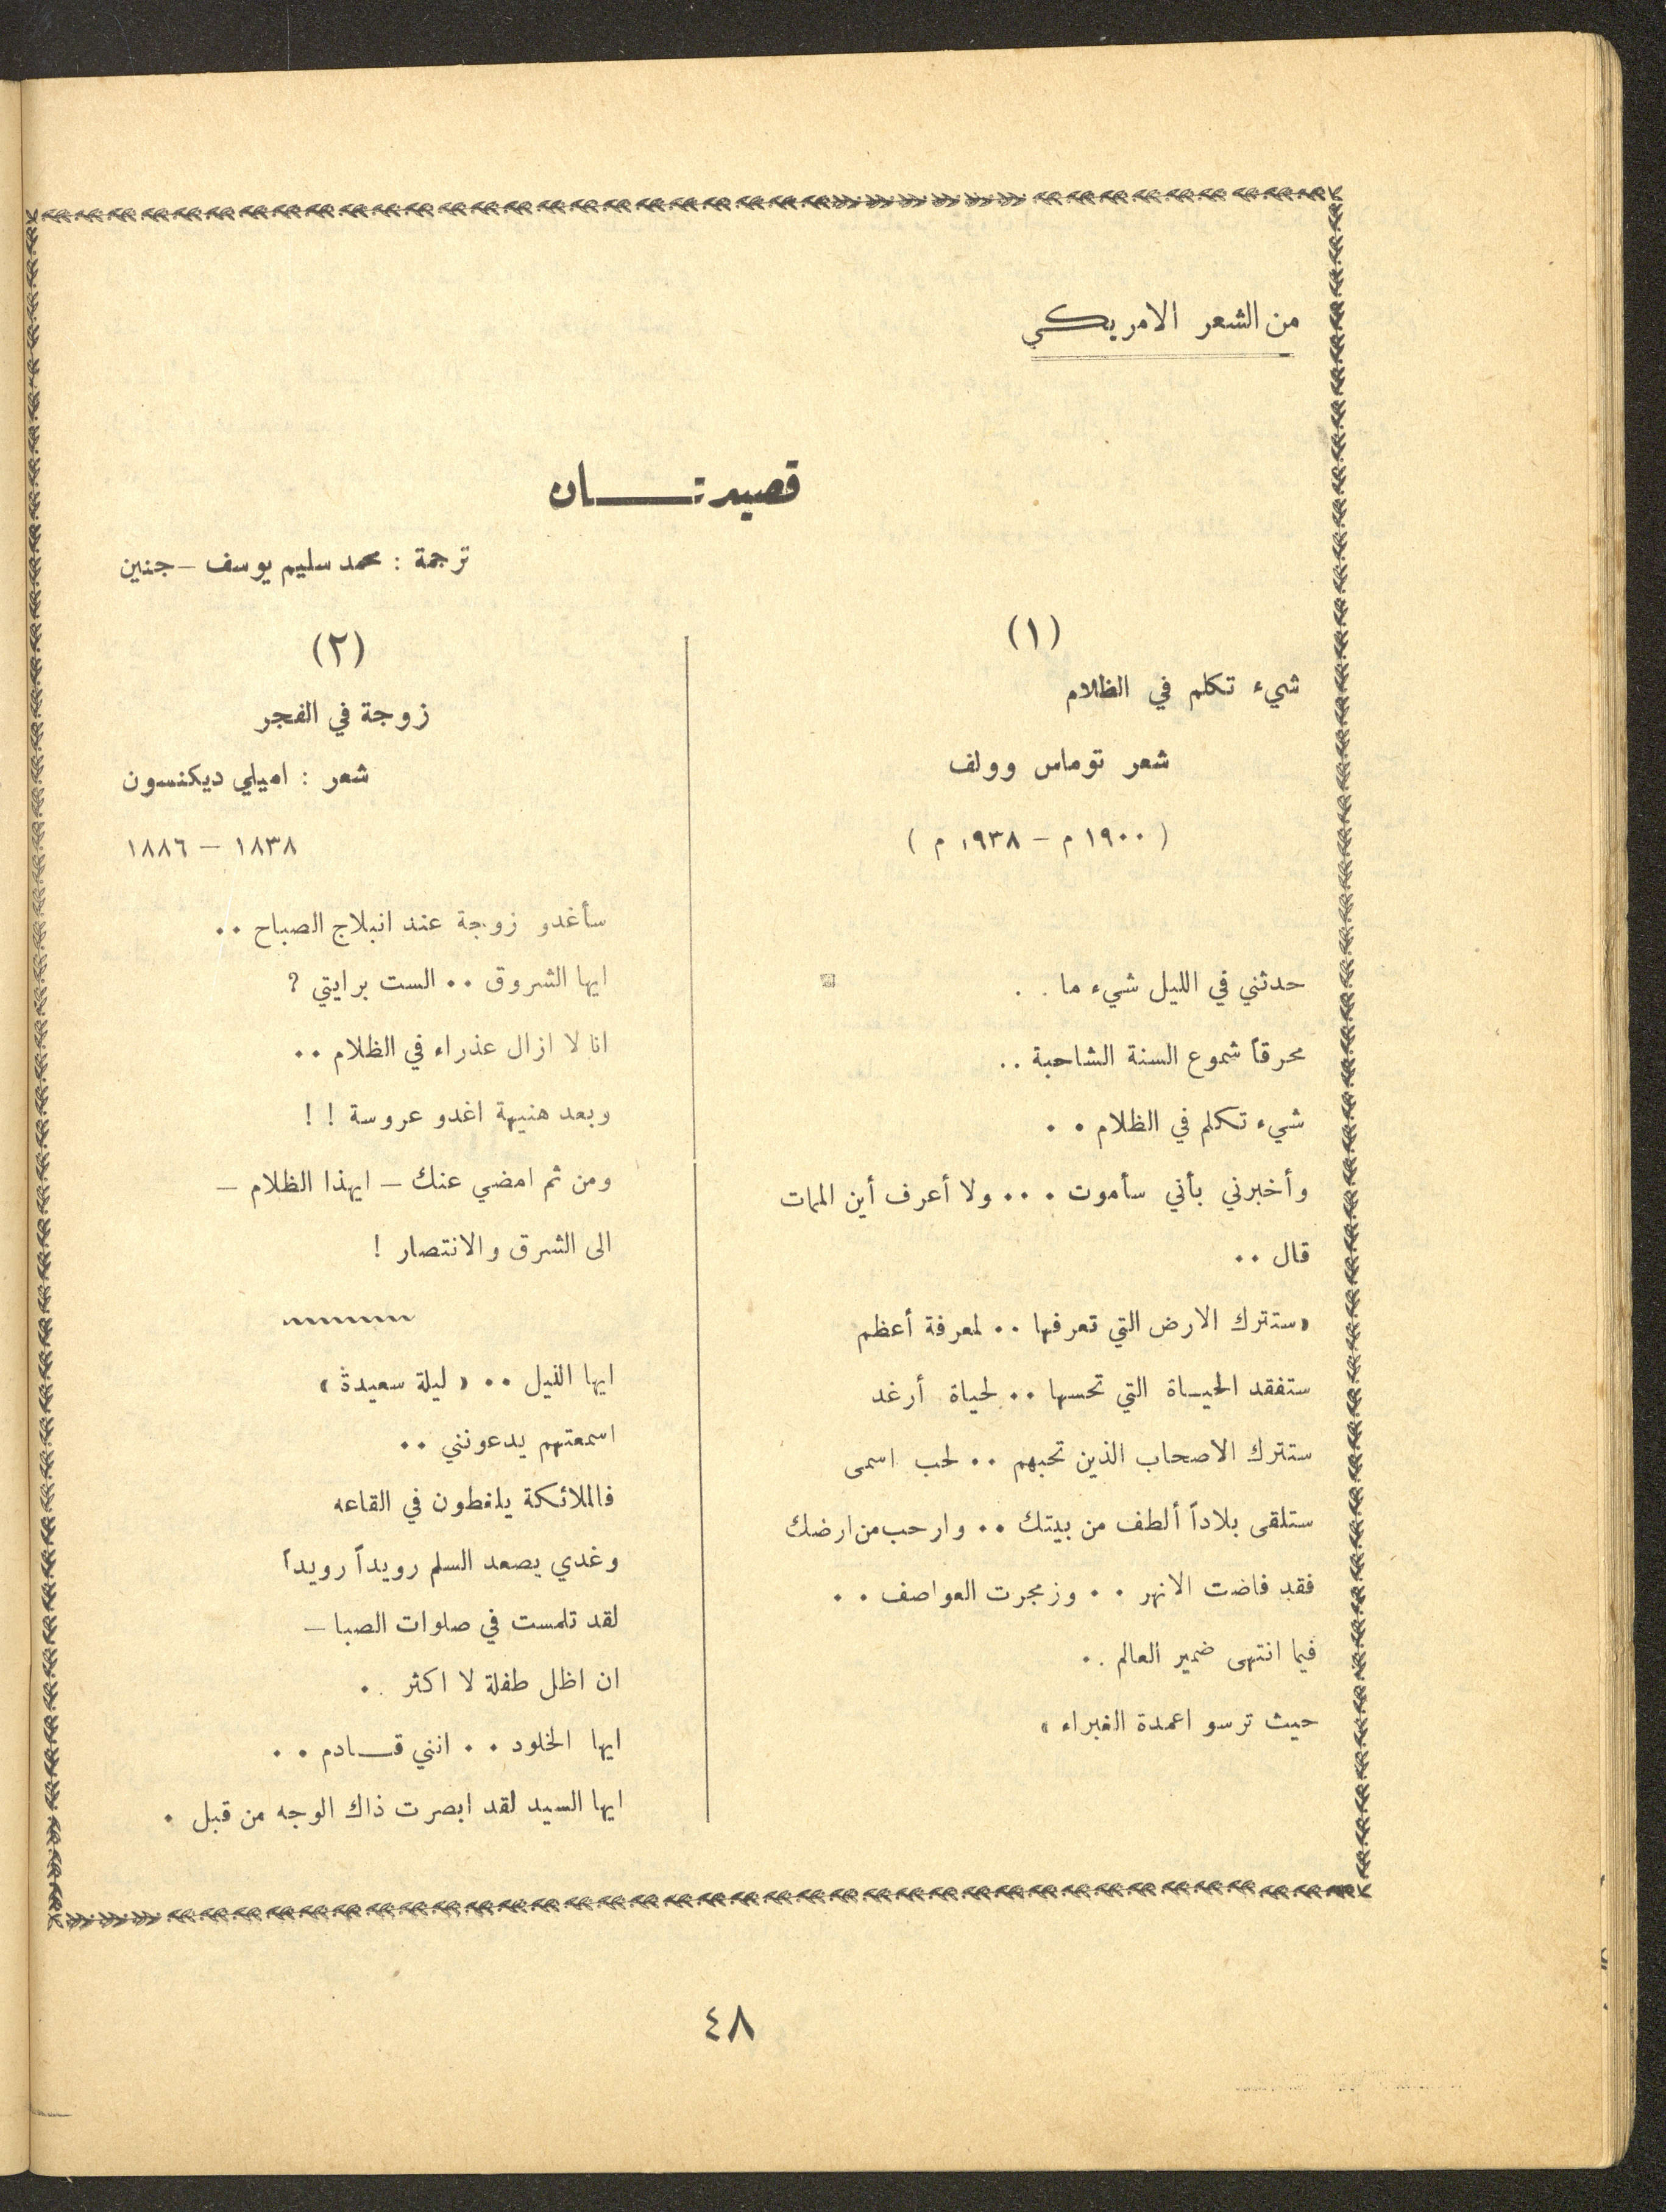 من الشعر الامريكي
قصيدتان
ترجمة : محمد سليم يوسف – جنين
(١)
شيء تكلم في الظلام
شعر توماس وولف
( ١٩٠٠ م – ١٩٣٨ م )
حدثني في الليل شيء ما . .
محرقاً شموع السنة الشاحبة ..
شيء تكلم في الظلام ..
وأخبرني بأني سأموت . .. ولا أعرف أين الممات
قال ..
«ستترك الارض التي تعرفها .. لمعرفة أعظم
ستفقد الحياة التي تحسها .. لحياة أرغد
ستترك الاصحاب الذين تحبهم .. لحب اسمى
ستلقى بلاداً ألطف من بيتك .. وارحب من ارضك
فقد فاضت الانهر .. وزمجرت العواصف ..
فيما انتهى ضمير العالم ..
حيث ترسو اعمدة الغبراء »
(٢)
زوجة في الفجر
شعر : اميلي ديكنسون
١٨٣٨ – ١٨٨٦
سأغدو زوجة عند انبلاج الصباح ..
ايها الشروق .. الست برايتي ?
انا لا ازال عذراء في الظلام ..
وبعد هنيهة اغدو عروسة ! !
ومن ثم امضي عنك – ايهذا الظلام –
الى الشرق والانتصار !
ايها الليل .. « ليلة سعيدة »
اسمعتهم يدعونني ..
فالملائكة يلغطون في القاعه
وغدي يصعد السلم رويداً رويداً
لقد تلمست في صلوات الصبا –
ان اظل طفلة لا اكثر ..
ايها الخلود .. انني قادم ..
ايها السيد لقد ابصرت ذاك الوجه من قبل .
٤٨